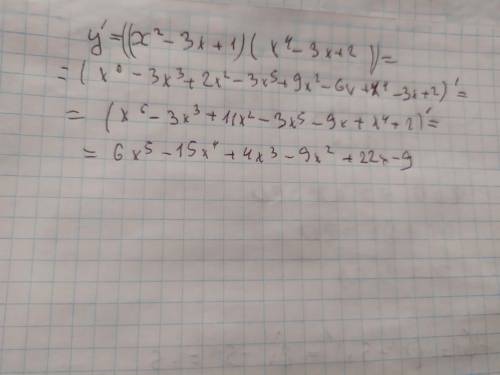 y' = ((x² - 3x + 1)(x⁴ - 3x + 2)) =
= (x⁶ - 3x³ + 2x² - 3x⁵ + 9x² - 6x + x⁴ - 3x + 2)' =
= (x⁶ - 3x³ + 11x² - 3x⁵ - 9x + x⁴ + 2)' =
= 6x⁵ - 15x⁴ + 4x³ - 9x² + 22x - 9